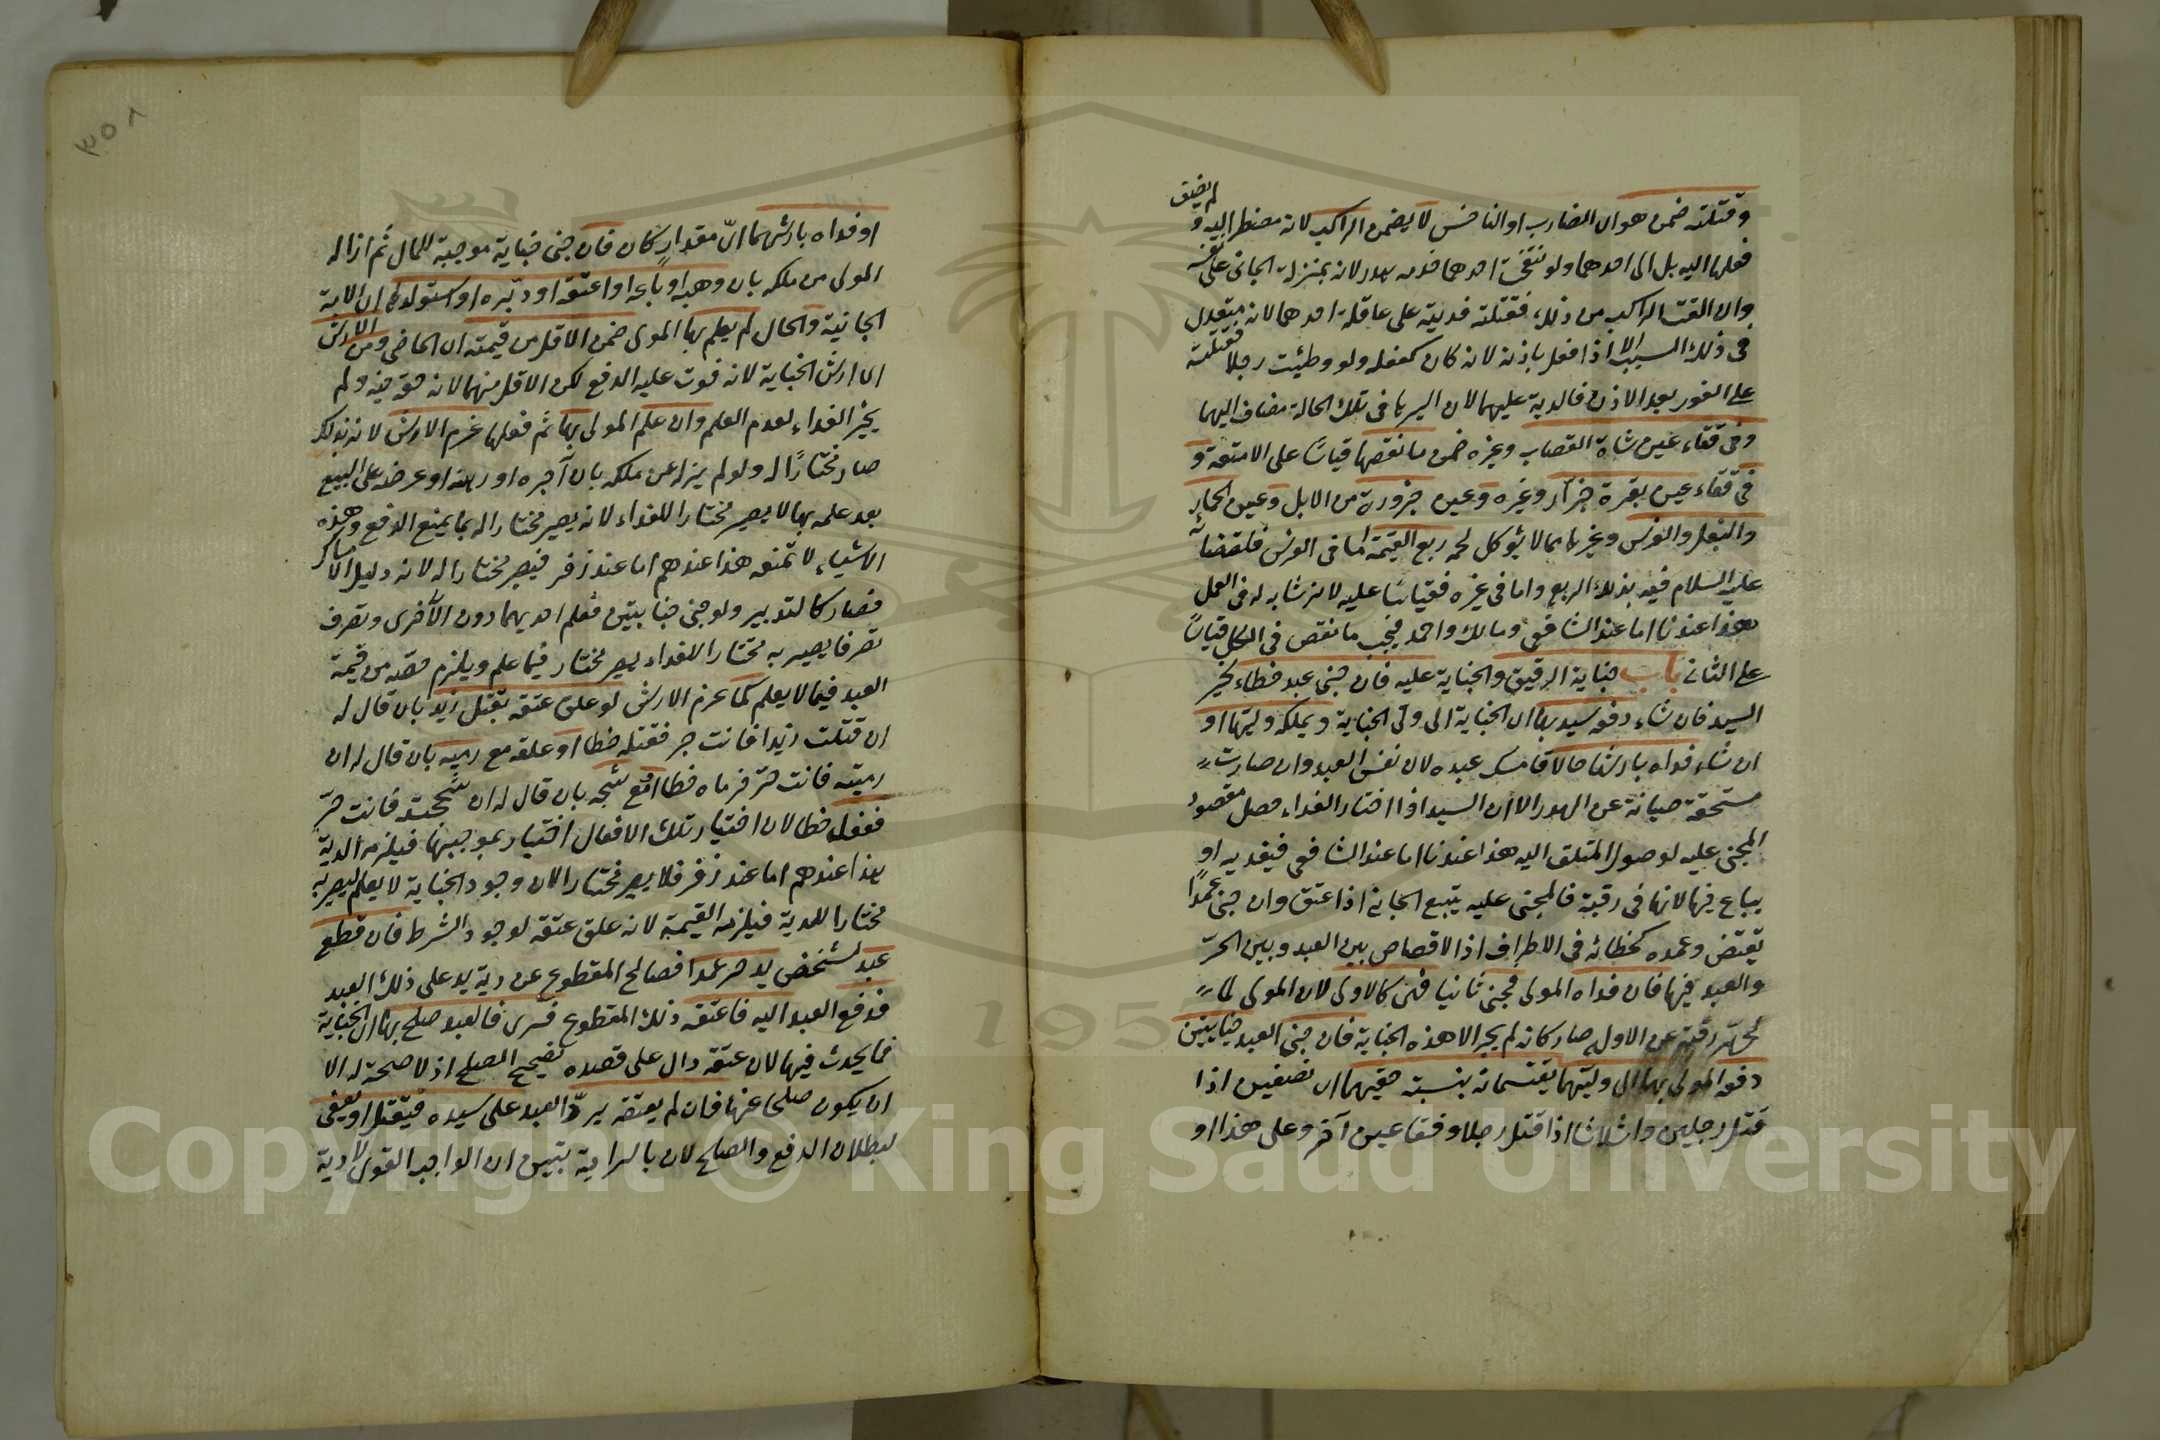 لم يضق
وقتلته ضمن هو اى الضارب او الناخس لا يضمن الراكب لانه مضطر اليه و
فعلها اليه بل الى احدهما ولو نفحت احدهما فدمه هدر لانه بمنزلة الجانى على نفسه
وان القت الراكب من ذلك فقتلته فديته على عاقلة احدهما لانه متعدى
فى ذلك السبب الا اذا فعل باذنه لانه كان كفعله ولو وطئت رجلا فقتلته
على الفور بعد الاذن فالدية عليهما لان السير ما فى تلك الحالة مضاف اليهما
وفى فقاء عين شاة القصاب وغيره ضمن ما نقصها قياسًا على الامتعة و
فى فقاء عين بقرة جزار وغيره وعين جزورة من الابل وعين الحمار
والبغل والفرس وغيرها مما لا يؤكل لحمه ربع القيمة اما فى الفرس فلقضائه
عليه السلام فيه بذلك الربع واما فى غيره فقياسًا عليه لانه شابه له فى العمل
هذا عندنا اما عند الشافعى ومالك واحمد فيجب ما نقص فى الكل قياسًا
على الثانى باب جناية الرقيق والجناية عليه فان جنى عبد خطاء يخير
السيد فان شاء دفعه سيده بها اى الجناية الى ولى الجناية ويملكه وليّها او
ان شاء فداه بارشها حالا فامسك عبده لان نفس العبد وان صارت
مستحقة صيانة عن الهدر الا ان السيد اذا اختار الفداء حصل مقصود
المجنى عليه لوصول المتلق اليه هذا عندنا اما عند الشافعى فيفديه او
يباع فيها لانها فى رقبة فالمجنى عليه يتبع الجانى اذا عتق وان جنى عمدًا
تقتض وعمده كخطائه فى الاطراف اذ لا قصاص بين العبد وبين الحرّ
والعبد فيها فان فداه المولى فجنى ثانيا فهى كالاولى لان المولى لما
طهّر رقبته عن الاولى صار كانه لم يجر الا هذه الجناية فان جنى العبد جنايتين
دفعه المولى بهما الى وليّهما يقتسمانه بنسبة حقيهما اى نصفين اذا
قتل رجلين واثلاثا اذا قتل رجلا وفقا عين آخر وعلى هذا او
٣٥٨
او فداه بارشهما اىّ مقدارٍ كان فان جنى جناية موجبة للمال ثم ازاله
المولى من ملكه بان وهبه او باعه او اعتقه او دبّره او استولدها اى الامة
الجانية والحال لم يعلم بها المولى ضمن الاقل من قيمته اى الحاضر ومن الارش
اى ارش الجناية لانه فوت عليه الدفع لكن الاقل منهما لانه حقه فيه ولم
يخير الفداء لعدم العلم وان علم المولى بها ثم فعلها غرم الارش لانه بذلك
صار مختارًا له ولو لم يزله عن ملكه بان آجره او رهنه او عرضه على البيع
بعد علمه بها لا يصير مختارا للفداء لانه يصير مختارا له بما يمنع الدفع وهذه
الاشياء لا تمنعه هذا عندهم اما عند زفر فيصير مختارا له لانه دليل الامساك
فصار كالتدبير ولو جنى جنايتين فعلم احديهما دون الآخرى وتصرف
تصرفا يصير به مختارا للفداء يصير مختار فيما علم ويلزم حصّته من قيمة
العبد فيما لا يعلم كما غرم الارش لو علق عتقه بقتل زيد بان قال له
ان قتلت زيدا فانت حر فقتله خطا او علقه مع رميه بان قال له ان
رميته فانت حرّ فرماه خطا او مع شجه بان قال له ان شججته فانت حرّ
ففعل خطا لان اختيار تلك الافعال اختيار بموجبها فيلزمه الدية
هذا عندهم اما عند زفر فلا يصير مختارا لان وجود الجناية لا يعلم ليصير به
مختارا للدية فيلزمه القيمة لانه علق عتقه لوجود الشرط فان قطع
عبد لشخص يد حر عمدا فصالح المقطوع عن دية يد على ذلك العبد
فدفع العبد اليه فاعتقه ذلك المقطوع فسرى فالعبد صلح بها اى الجناية
فما يحدث فيها لان عتقه دال على قصده تصحيح الصلح اذ لا صحة له الا
ان يكون صلحا عنها فان لم يعتقه يردّ العبد على سيده فيقتل او يعفى
لبطلان الدفع والصلح لان بالسراية تبين ان الواجب القود لا دية